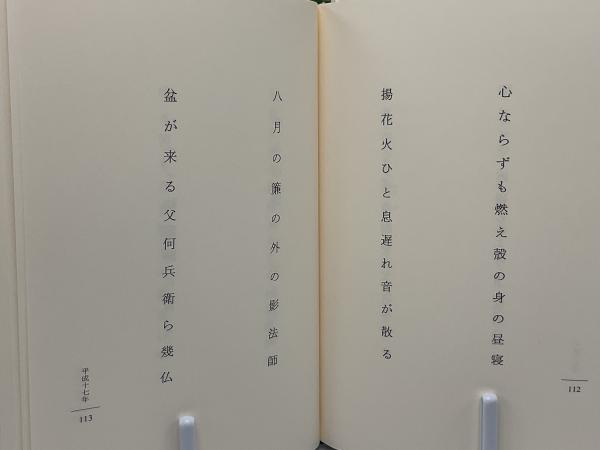 心ならずも燃え殻の身の昼寝
揚花火ひと息遅れ音が散る
112
八月の簾の外の影法師
盆が来る父何兵衛ら幾仏
平成十七年
113